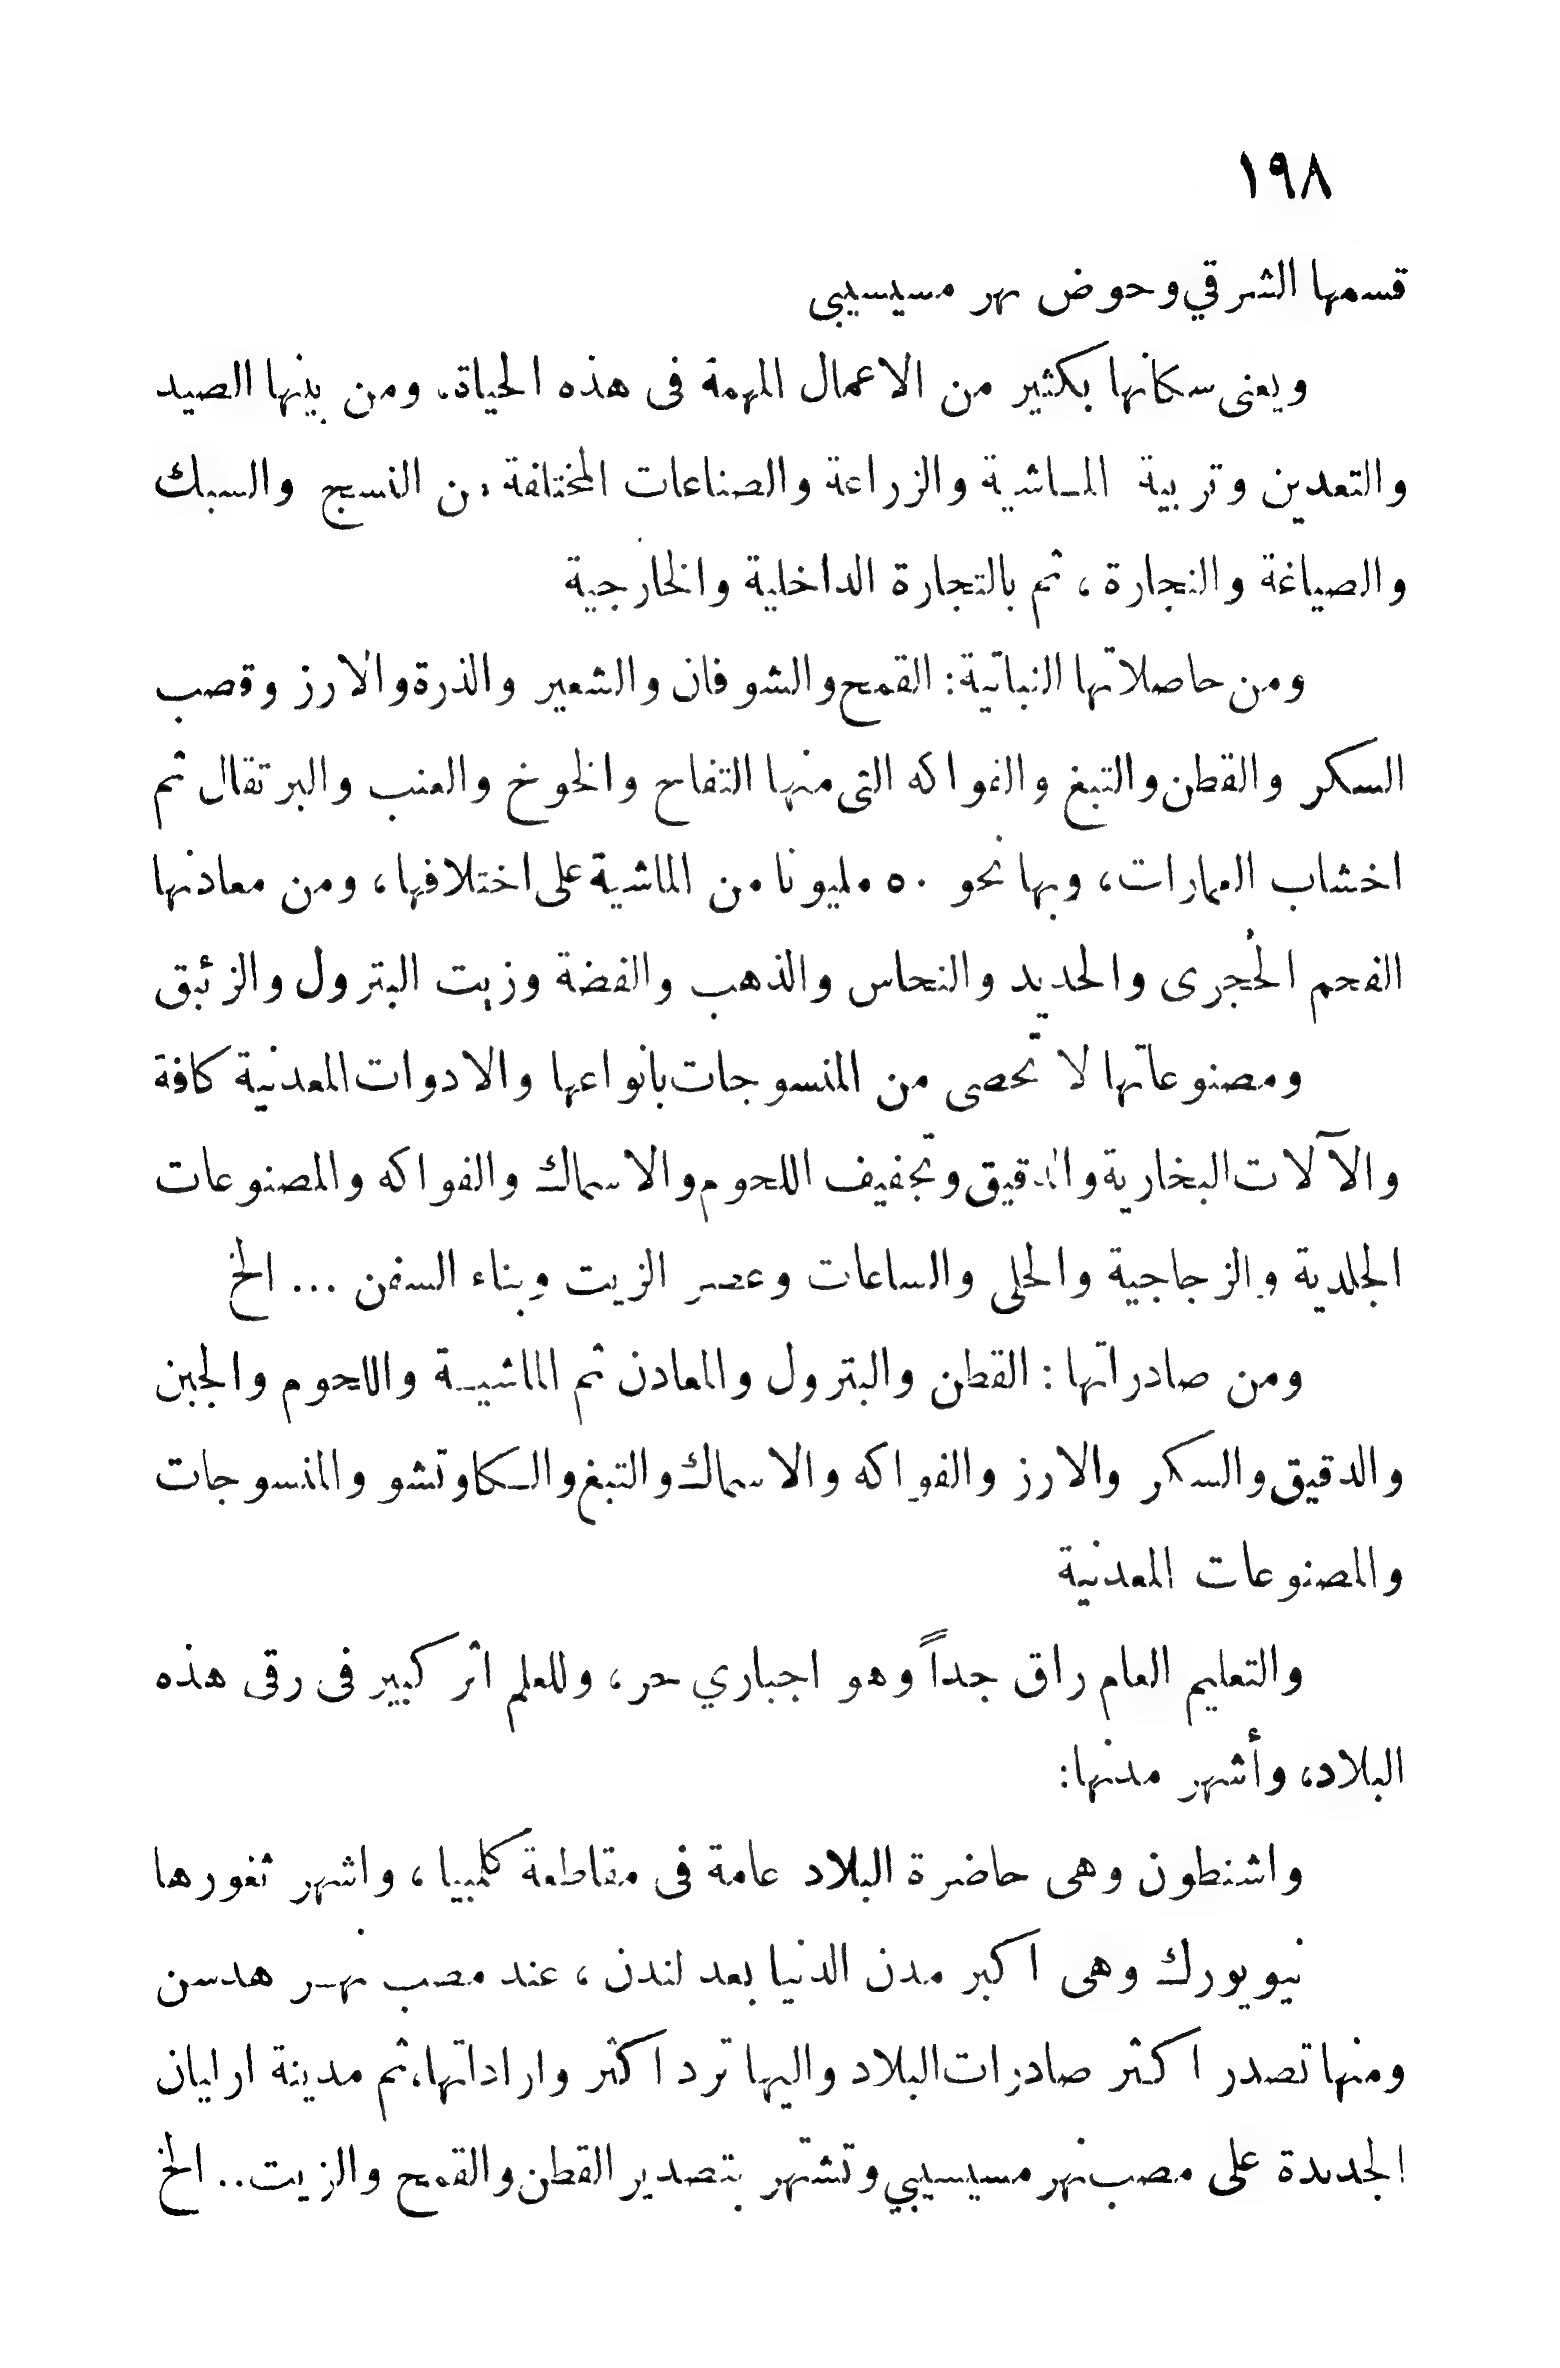 ١٩٨
قسمها الشرقي وحوض نهر مسيسيبى
ويعنى سكانها بكثير من الاعمال المهمة فى هذه الحياة، ومن بينها الصيد
والتعدين وتربية الماشية والزراعة والصناعات المختلفة من النسج والسبك
والصياغة والنجارة، ثم بالتجارة الداخلية والخارجية
ومن حاصلاتها النباتية: القمح والشوفان والشعير والذرة والارز وقصب
السكر والقطن والتبغ والفواكه التى منها التفاح والخوخ والعنب والبرتقال ثم
اخشاب العمارات، وبها نحو ٥٠ مليونا من الماشية على اختلافها، ومن معادنها
الفحم الحجرى والحديد والنحاس والذهب والفضة وزيت البترول والزئبق
ومصنوعاتها لا تحصى من المنسوجات بانواعها والادوات المعدنية كافة
والآلات البخارية والدقيق وتجفيف اللحوم والاسماك والفواكه والمصنوعات
الجلدية والزجاجية والحلى والساعات وعصر الزيت وبناء السفن ... الخ
ومن صادراتها: القطن والبترول والمعادن ثم الماشية واللحوم والجبن
والدقيق والسكر والارز والفواكه والاسماك والتبغ والكاوتشو والمنسوجات
والمصنوعات المعدنية
والتعليم العام راق جداً وهو اجباري حر، وللعلم اثر كبير فى رقى هذه
البلاد، وأشهر مدنها:
واشنطون وهى حاضرة البلاد عامة فى مقاطعة كلمبيا، واشهر ثغورها
نيويورك وهى اكبر مدن الدنيا بعد لندن، عند مصب نهر هدسن
ومنها تصدر اكثر صادرات البلاد واليها ترد اكثر وارداتها، ثم مدينة ارليان
الجديدة على مصب نهر مسيسيبي وتشتهر بتصدير القطن والقمح والزيت.. الخ